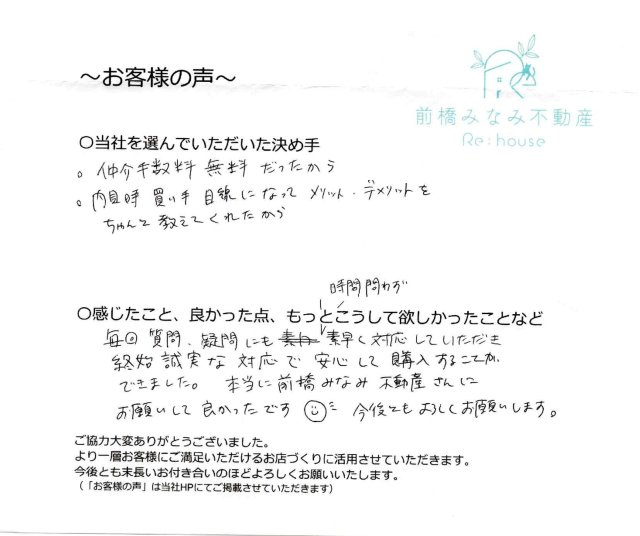 ～お客様の声～
前橋みなみ不動産
Re:house
〇当社を選んでいただいた決め手
。仲介手数料 無料 だったから
。内見時 買い手 目線になって メリット・デメリットを
ちゃんと教えてくれたから
時間問わず
〇感じたこと、良かった点、もっとこうして欲しかったことなど
毎回 質問、疑問にも 素早く 対応していただき
終始 誠実な 対応で 安心して 購入することが
できました。 本当に 前橋みなみ 不動産 さんに
お願いして 良かったです 今後とも よろしくお願いします。
ご協力大変ありがとうございました。
より一層お客様にご満足いただけるお店づくりに活用させていただきます。
今後とも末長いお付き合いのほどよろしくお願いいたします。
（「お客様の声」は当社HPにてご掲載させていただきます）